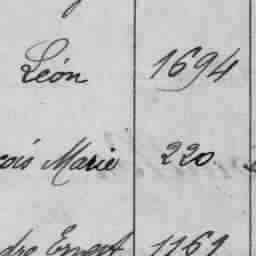 Léon 1694
çois Marie 220.
dre Ernest 1169